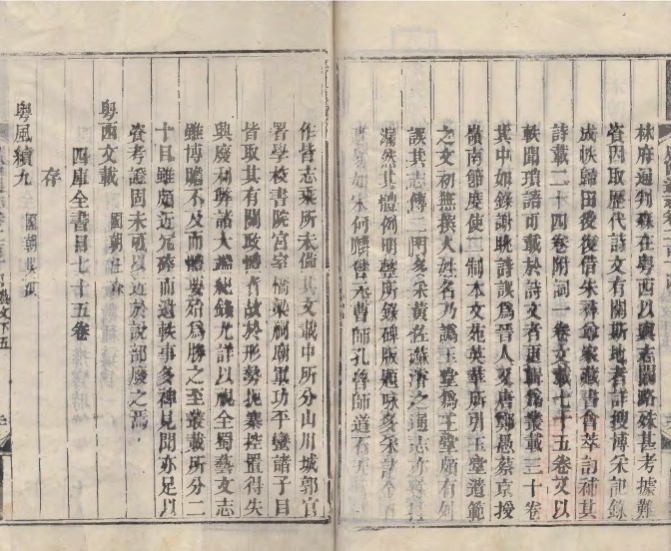 林府通判森在粵西以輿志闕略殊甚考據難
資因取歷代詩文有關斯地者詳搜博采記錄
成帙歸田後復借朱彝尊家藏書薈萃訂補其
詩載二十四卷附詞一卷文載七十五卷又以
軼聞瑣語可載於詩文者更輯為叢載三十卷
其中如錄謝朓詩誤為晉人又唐鄭愚蔡京授
嶺南節度使二制本文苑英華所引玉堂遺範
之文初無撰人姓名乃譌玉堂為王堂頗有
誤其志傳二門多采黃佐蘇濬之通志
濶然其體例明整所錄碑版題咏多采
如宋何麃曾元曹師孔
作皆志乘所未備其文載中所分山川城郭官
署學校書院宮室橋梁祠廟軍功平蠻諸子目
皆取其有關政體者故於形勢扼塞控置得失
興廢利弊諸大端紀錄尤詳以視全蜀藝文志
雖博贍不及而體要殆為勝之至叢載所分二
十目雖頗近冗碎而遺軼事多裨見聞亦足以
資考證固未可以近於說部廢之焉
粵西文載 國朝汪森
四庫全書目七十五卷
存
粵風續九 國朝吳淇
藝文下五